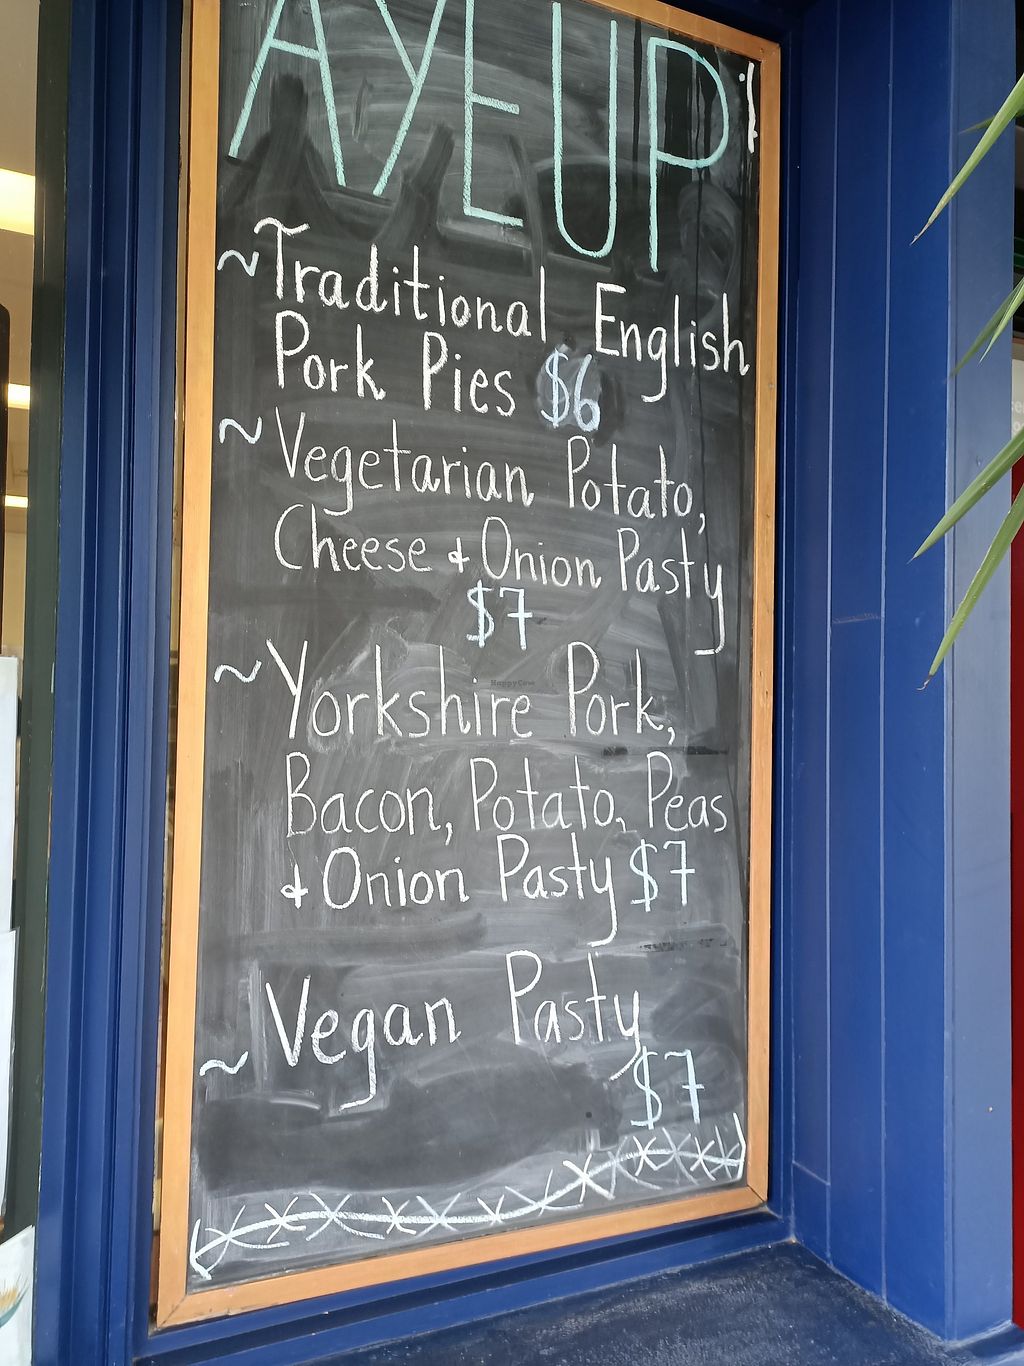 AYE UP!
~Traditional English
Pork Pies $6
~Vegetarian Potato,
Cheese & Onion Pasty
$7
~Yorkshire Pork,
Bacon, Potato, Peas
& Onion Pasty $7
~Vegan Pasty
$7
HappyCow